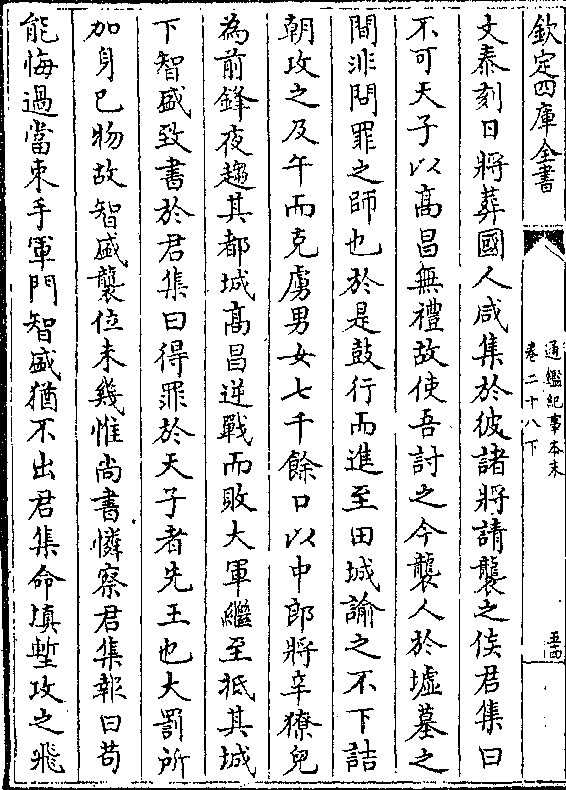 欽定四庫全書
通鑑紀事本末
卷二十八下
文泰刻日將葬國人咸集於彼諸將請襲之侯君集曰
不可天子以髙昌無禮故使吾討之今襲人於墟墓之
間非問罪之師也於是鼓行而進至田城諭之不下詰
朝攻之及午而克虜男女七千餘口以中郎將辛獠兒
為前鋒夜趨其都城髙昌逆戰而敗大軍繼至抵其城
下智盛致書於君集曰得罪於天子者先王也大罰所
加身已物故智盛襲位未幾惟尚書憐察君集報曰苟
能悔過當束手軍門智盛猶不出君集命填塹攻之飛